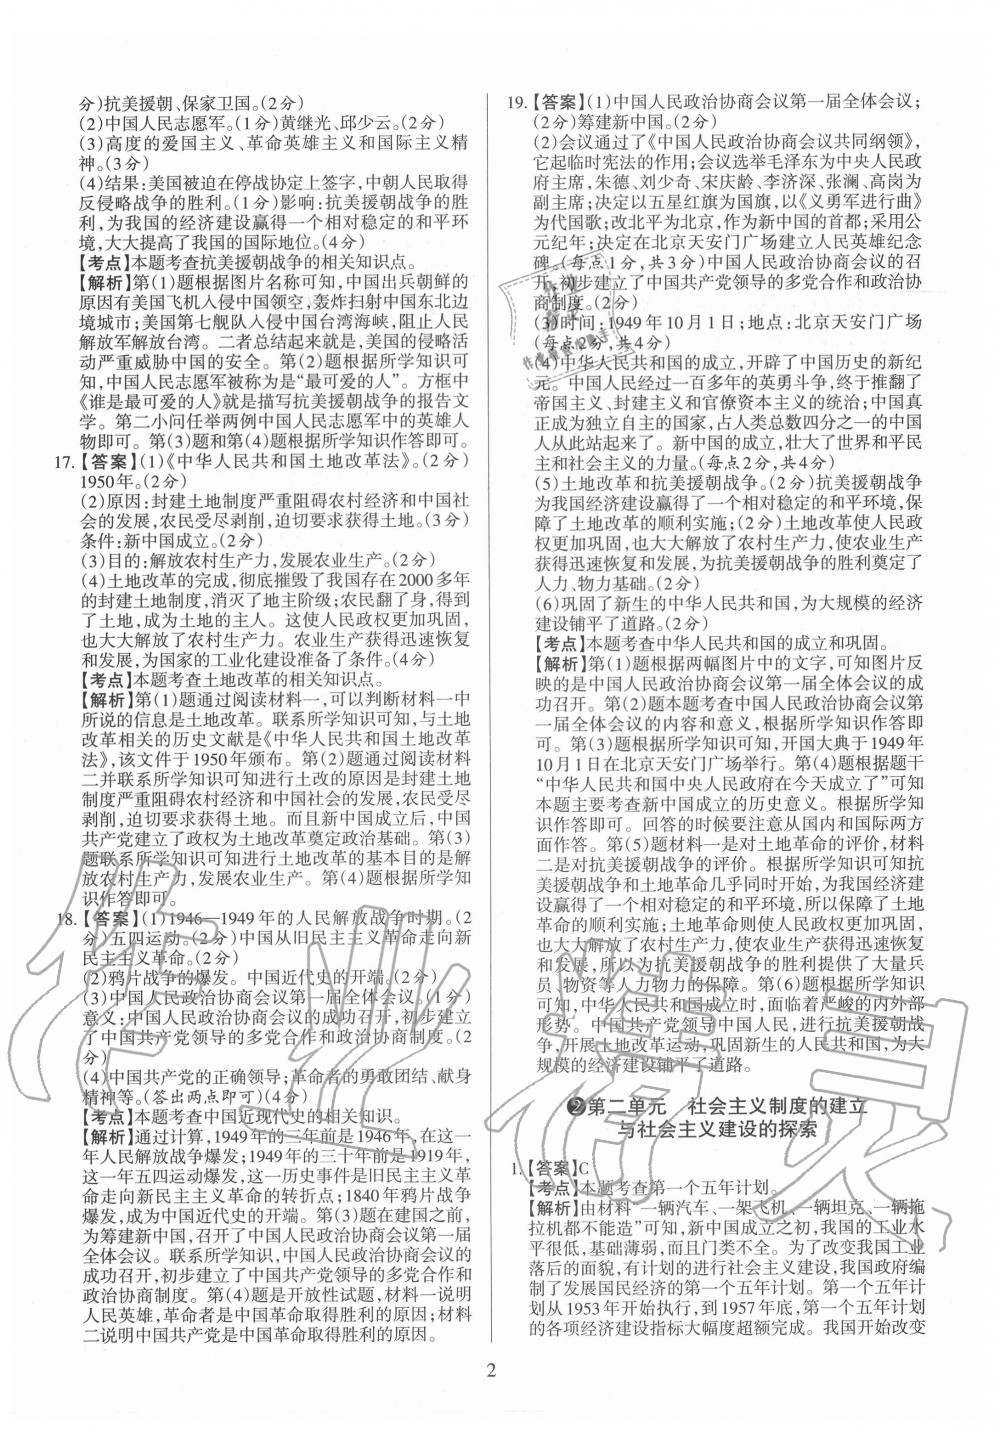 分)抗美援朝、保家卫国。(2分)
(2)中国人民志愿军。(1分)黄继光、邱少云。(2分)
(3)高度的爱国主义、革命英雄主义和国际主义精
神。(3分)
(4)结果:美国被迫在停战协定上签字,中朝人民取得
反侵略战争的胜利。(1分)影响:抗美援朝战争的胜
利,为我国的经济建设赢得一个相对稳定的和平环
境,大大提高了我国的国际地位。(4分)
【考点】本题考查抗美援朝战争的相关知识点。
【解析】第(1)题根据图片名称可知,中国出兵朝鲜的
原因有美国飞机入侵中国领空,轰炸扫射中国东北边
境城市;美国第七舰队入侵中国台湾海峡,阻止人民
解放军解放台湾。二者总结起来就是,美国的侵略活
动严重威胁中国的安全。第(2)题根据所学知识可
知,中国人民志愿军被称为是“最可爱的人”。方框中
《谁是最可爱的人》就是描写抗美援朝战争的报告文
学。第二小问任举两例中国人民志愿军中的英雄人
物即可。第(3)题和第(4)题根据所学知识作答即可。
17.【答案】(1)《中华人民共和国土地改革法》。(2分)
1950年。(2分)
(2)原因:封建土地制度严重阻碍农村经济和中国社
会的发展,农民受尽剥削,迫切要求获得土地。(3分)
条件:新中国成立。(2分)
(3)目的:解放农村生产力,发展农业生产。(2分)
(4)土地改革的完成,彻底摧毁了我国存在2000多年
的封建土地制度,消灭了地主阶级;农民翻了身,得到
了土地,成为土地的主人。这使人民政权更加巩固,
也大大解放了农村生产力。农业生产获得迅速恢复
和发展,为国家的工业化建设准备了条件。(4分)
【考点】本题考查土地改革的相关知识点。
【解析】第(1)题通过阅读材料一,可以判断材料一中
所说的信息是土地改革。联系所学知识可知,与土地
改革相关的历史文献是《中华人民共和国土地改革
法》,该文件于1950年颁布。第(2)题通过阅读材料
二并联系所学知识可知进行土改的原因是封建土地
制度严重阻碍农村经济和中国社会的发展,农民受尽
剥削,迫切要求获得土地。而且新中国成立后,中国
共产党建立了政权为土地改革奠定政治基础。第(3)
题联系所学知识可知进行土地改革的基本目的是解
放农村生产力,发展农业生产。第(4)题根据所学知
识作答即可。
18.【答案】(1)1946—1949年的人民解放战争时期。(2
分)五四运动。(2分)中国从旧民主主义革命走向新
民主主义革命。(2分)
(2)鸦片战争的爆发。中国近代史的开端。(2分)
(3)中国人民政治协商会议第一届全体会议。(1分)
意义:中国人民政治协商会议的成功召开,初步建立
了中国共产党领导的多党合作和政治协商制度。(2
分)
(4)中国共产党的正确领导;革命者的勇敢团结、献身
精神等。(答出两点即可)(4分)
【考点】本题考查中国近现代史的相关知识。
【解析】通过计算,1949年的三年前是1946年,在这一
年人民解放战争爆发;1949年的三十年前是1919年,
这一年五四运动爆发,这一历史事件是旧民主主义革
命走向新民主主义革命的转折点;1840年鸦片战争
爆发,成为中国近代史的开端。第(3)题在建国之前,
为筹建新中国,召开了中国人民政治协商会议第一届
全体会议。联系所学知识可知,中国人民政协会议的
成功召开,初步建立了中国共产党领导的多党合作和
政治协商制度。第(4)题是开放性试题,材料一说明
人民英雄,革命者是中国革命取得胜利的原因;材料
二说明中国共产党是中国革命取得胜利的原因。
19.【答案】(1)中国人民政治协商会议第一届全体会议;
(2分)筹建新中国。(2分)
(2)会议通过了《中国人民政治协商会议共同纲领》,
它起临时宪法的作用;会议选举毛泽东为中央人民政
府主席,朱德、刘少奇、宋庆龄、李济深、张澜、高岗为
副主席;决定以五星红旗为国旗,以《义勇军进行曲》
为代国歌;改北平为北京,作为新中国的首都;采用公
元纪年;决定在北京天安门广场建立人民英雄纪念
碑。(每点1分,共3分)中国人民政治协商会议的召
开,初步建立了中国共产党领导的多党合作和政治协
商制度。(2分)
(3)时间:1949年10月1日;地点:北京天安门广场
(每点2分,共4分)
(4)中华人民共和国的成立,开辟了中国历史的新纪
元。中国人民经过一百多年的英勇斗争,终于推翻了
帝国主义、封建主义和官僚资本主义的统治;中国真
正成为独立自主的国家,占人类总数四分之一的中国
人从此站起来了。新中国的成立,壮大了世界和平民
主和社会主义的力量。(每点2分,共4分)
(5)土地改革和抗美援朝战争。(2分)抗美援朝战争
为我国经济建设赢得了一个相对稳定的和平环境,保
障了土地改革的顺利实施;(2分)土地改革使人民政
权更加巩固,也大大解放了农村生产力,使农业生产
获得迅速恢复和发展,为抗美援朝战争的胜利奠定了
人力、物力基础。(2分)
(6)巩固了新生的中华人民共和国,为大规模的经济
建设铺平了道路。(2分)
【考点】本题考查中华人民共和国的成立和巩固。
【解析】第(1)题根据两幅图片中的文字,可知图片反
映的是中国人民政治协商会议第一届全体会议的成
功召开。第(2)题本题考查中国人民政治协商会议第
一届全体会议的内容和意义,根据所学知识作答即
可。第(3)题根据所学知识可知,开国大典于1949年
10月1日在北京天安门广场举行。第(4)题根据题干
“中华人民共和国中央人民政府在今天成立了”可知
本题主要考查新中国成立的历史意义。根据所学知
识作答即可。回答的时候要注意从国内和国际两方
面作答。第(5)题材料一是对土地革命的评价,材料
二是对抗美援朝战争的评价。根据所学知识可知抗
美援朝战争和土地革命几乎同时开始,为我国的经济
建设赢得一个相对稳定的和平环境,所以保障了土地
革命的顺利实施;土地革命则使人民政权更加巩固,
也大大解放了农村生产力,使农业生产获得迅速恢复
和发展,所以为抗美援朝战争的胜利提供了大量兵
员、物资等人力物力的保障。第(6)题根据所学知识
可知,中华人民共和国成立时,面临着严峻的内外部
形势。中国共产党领导中国人民,进行抗美援朝战
争,开展土地改革运动,巩固新生的人民共和国,为大
规模的经济建设铺平了道路。
❷第二单元 社会主义制度的建立
与社会主义建设的探索
1.【答案】C
【考点】本题考查第一个五年计划。
【解析】由材料“一辆汽车、一架飞机、一辆坦克、一辆拖
拉机都不能造”可知,新中国成立之初,我国的工业水
平很低,基础薄弱,而且门类不全。为了改变我国工业
落后的面貌,有计划的进行社会主义建设,我国政府编
制了发展国民经济的第一个五年计划。第一个五年计
划从1953年开始执行,到1957年底,第一个五年计划
的各项经济建设指标大幅度超额完成。我国开始改变
2
作业精灵